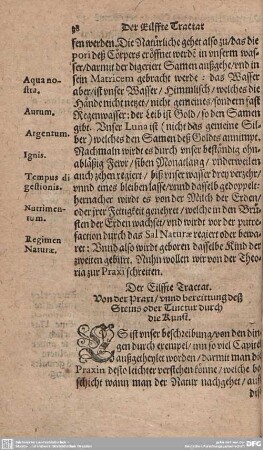 98 Der Eilffte Tractat
sen werden. Die Natürliche gehet also zu/das die
pori deß Cörpers eröffnet werdē in unserm was-
ser/darmit der digeriert Samen außgehe/vnd in
Aqua no-
stra.
sein Matricem gebracht werde: das Wasser
aber/ist vnser Wasser/Himmlisch/welches die
Hände nicht netzet/nicht gemeines/sondern fast
Aurum.
Regenwasser: der Leib ist Gold/so den Samen
Argentum.
gibt. Vnser Luna ist (nicht das gemeine Sil-
ber) welches den Samen deß Goldes annimt.
Ignis.
Nachmaln wirdt es durch vnser beständig ohn-
abläßig Fewr/siben Monatlang/vnderweilen
Tempus di
gestionis.
auch zehen regiert/biß vnser wasser drey verzehr/
vnnd eines bleiben lasse/vnnd dasselb gedoppelt:
Nutrimen-
tum.
hernacher wirdt es von der Milch der Erden/
oder jrer Fettigkeit genehret/welche in den Brü-
sten der Erden wachset/vnd wirdt vor der putre-
Regimen
Naturæ.
faction durch das Sal Naturæ regiert oder bewa-
ret: Vnnd also wirdt geboren dasselbe Kind der
zweiten geburt. Nuhn wollen wir von der Theo-
ria zur Praxi schreiten.
Der Eilffte Tractat.
Von der Praxi/vnnd bereittung deß
Steins oder Tinctur durch
die Kunst.
ES ist vnser beschreibung/von den din-
gen durch exempel/inn so viel Capitel
außgetheylet worden/darmit man die
Praxin desto leichter verstehen könne/welche be-
schicht wann man der Natur nachgehet/auff
diß